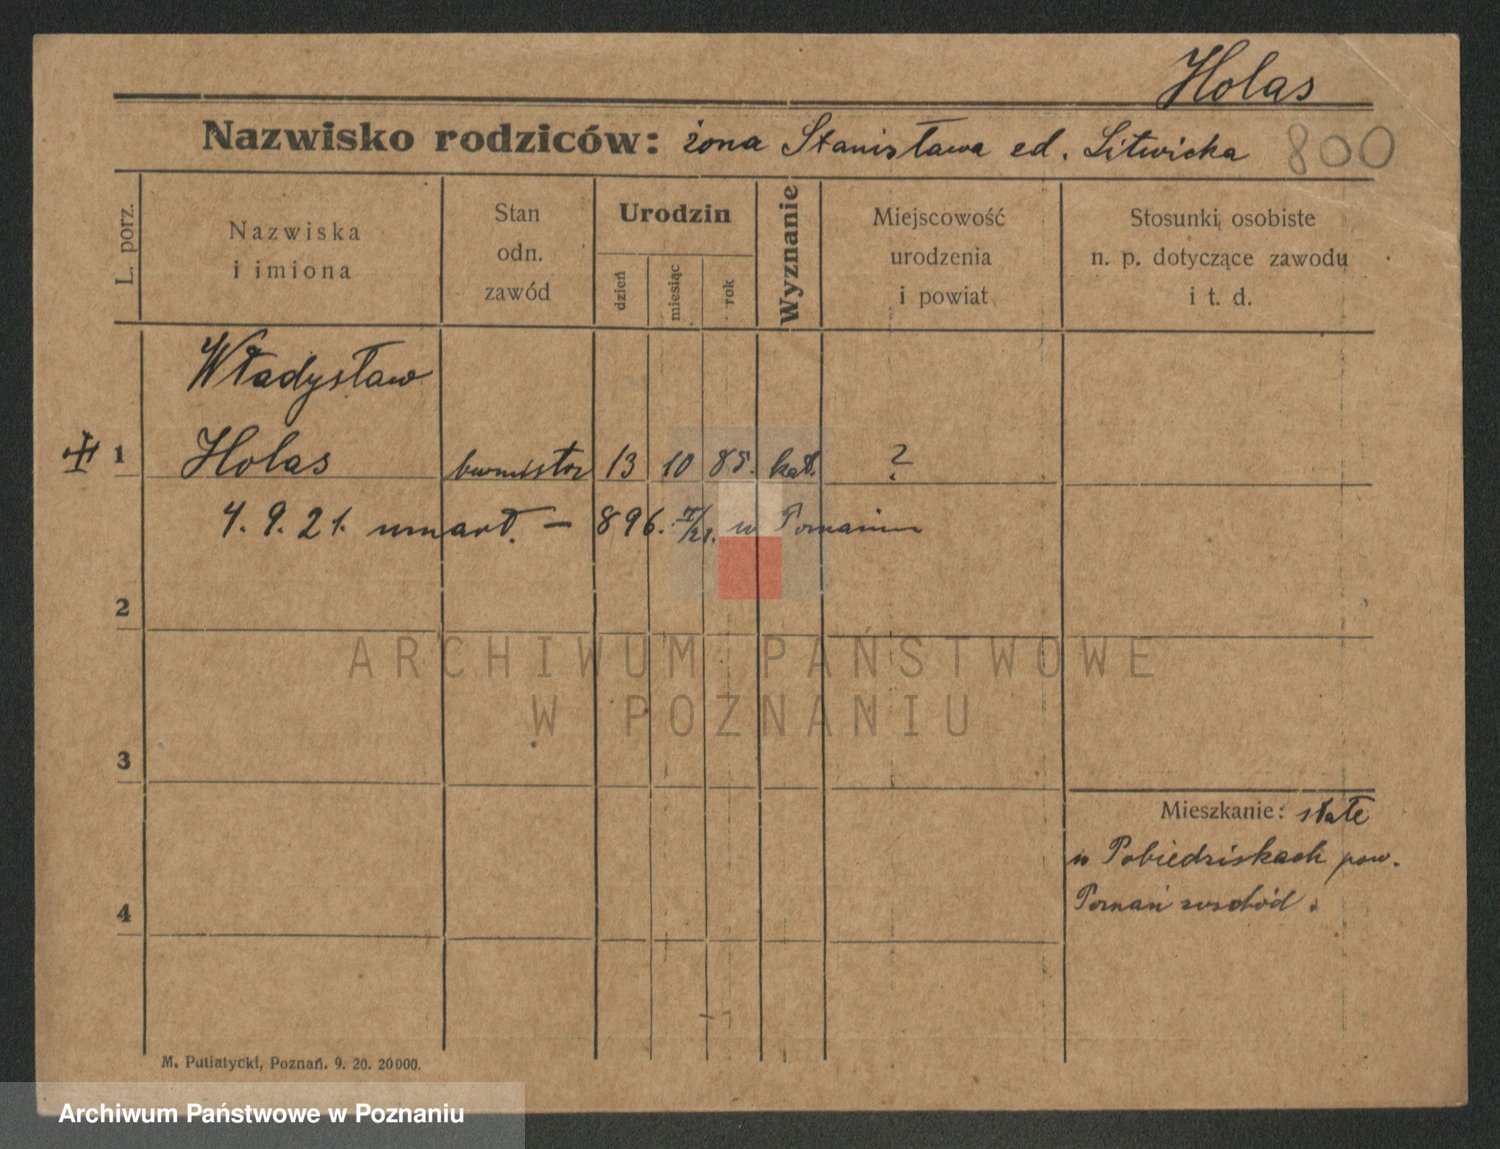 Holas
Nazwisko rodziców: żona Stanisława ed. Litwicka 800
L. porz.
Nazwiska
i imiona
Stan
odn.
zawód
Urodzin
dzień
miesiąc
rok
Wyznanie
Miejscowość
urodzenia
i powiat
Stosunki osobiste
n. p. dotyczące zawodu
i t. d.
Władysław
1 Holas burmistrz 13 10 85. kat. ?
4. 9. 21. umarł. – 896. V/21. w Poznaniu
2
ARCHIWUM PAŃSTWOWE
W POZNANIU
3
Mieszkanie: stałe
w Pobiedziskach pow.
Poznań wschód.
4
M. Putiatycki, Poznań. 9. 20. 20000.
Archiwum Państwowe w Poznaniu